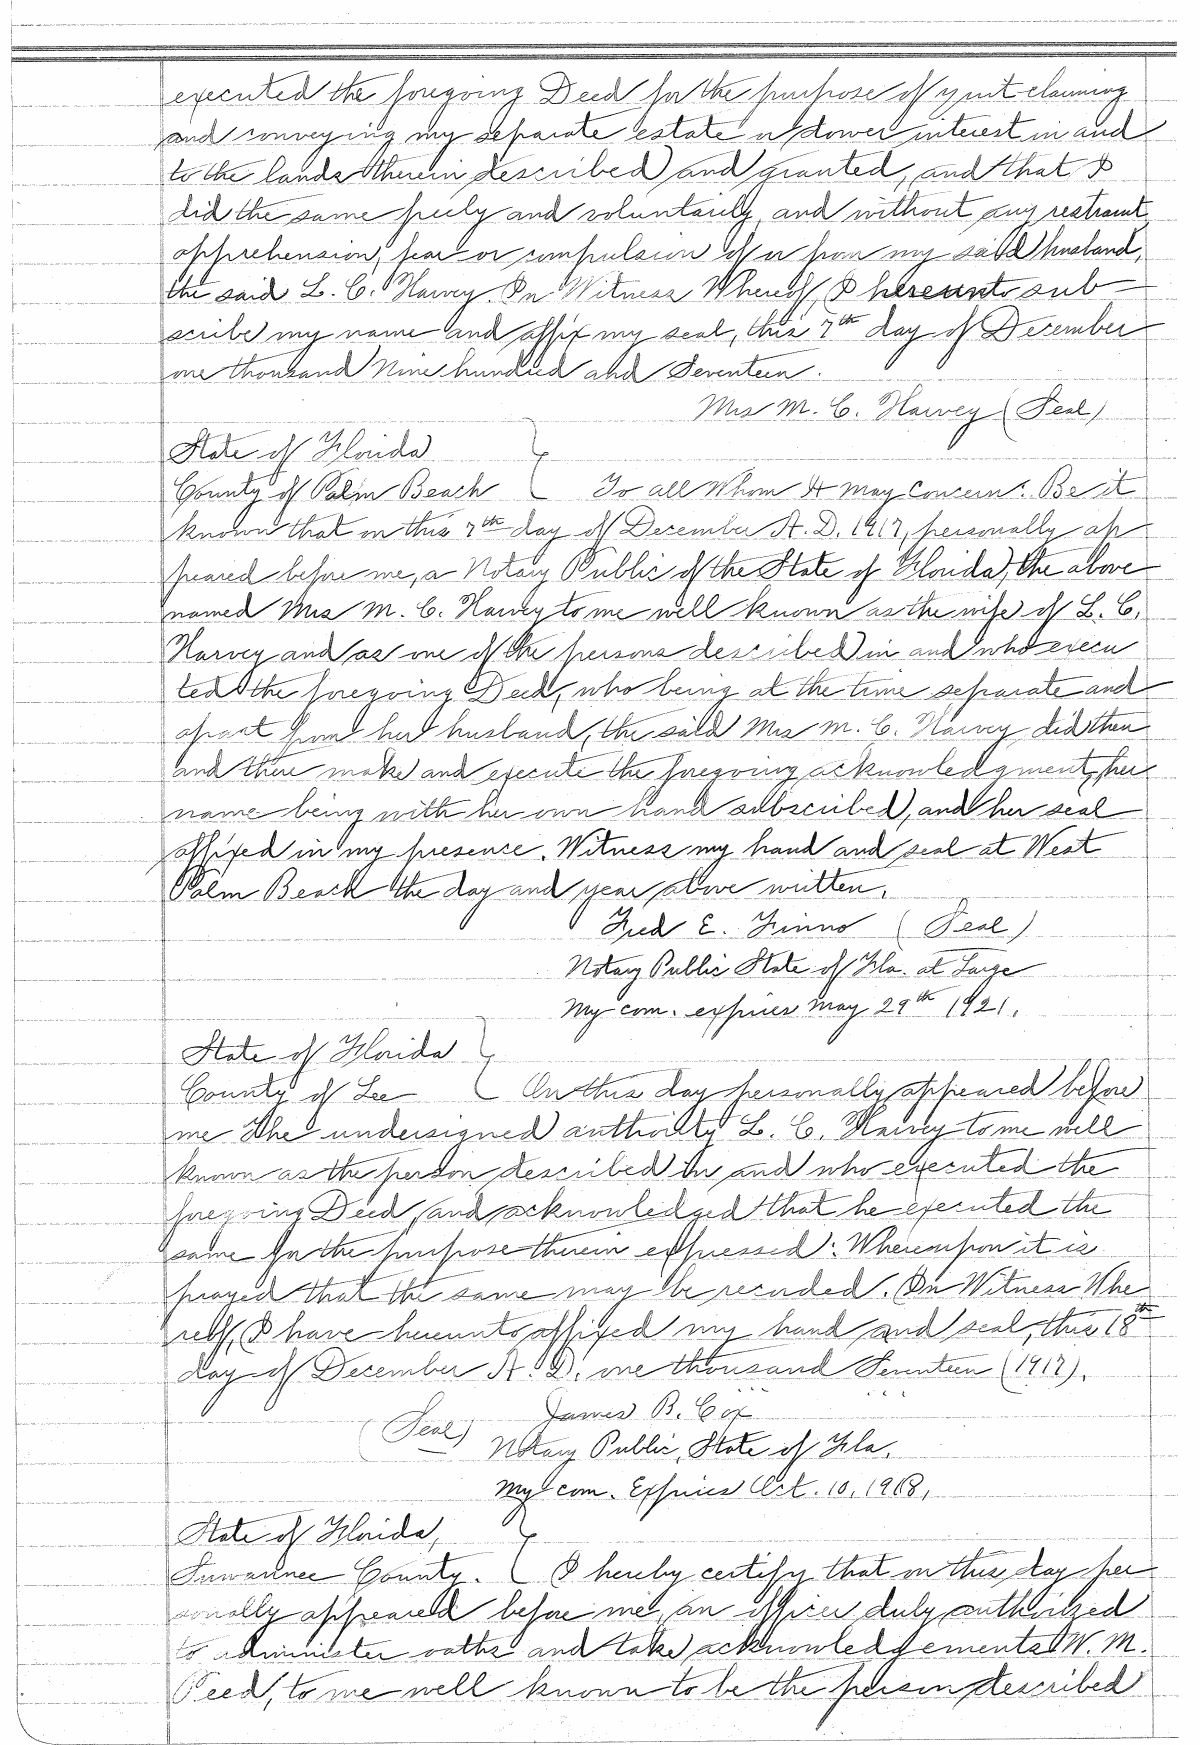 executed the foregoing Deed for the purpose of quit-claiming
and conveying my separate estate or dower interest in and
to the lands therein described and granted, and that I
did the same freely and voluntarily, and without any restraint,
apprehension, fear or compulsion of or from my said husband,
the said L. C. Harvey. In Witness Whereof, I hereunto sub
scribe my name and affix my seal, this 7th day of December
one thousand Nine hundred and Seventeen.
Mrs M. C. Harvey (Seal)
State of Florida
County of Palm Beach To all Whom It may Concern: Be it
known that on this 7th day of December A. D. 1917, personally ap
peared before me, a Notary Public of the State of Florida, the above
named Mrs M. C. Harvey to me well known as the wife of L. C.
Harvey and as one of the persons described in and who execu
ted the foregoing Deed, who being at the time separate and
apart from her husband, the said Mrs M. C. Harvey did then
and there make and execute the foregoing acknowledgment, her
name being with her own hand subscribed, and her seal
affixed in my presence. Witness my hand and seal at West
Palm Beach the day and year above written.
Fred E. (Seal)
Notary Public State of Fla. at Large
My com. expires May 29th 1921.
State of Florida
County of Lee On this day personally appeared before
me the undersigned authority L. C. Harvey to me well
known as the person described in and who executed the
foregoing Deed, and acknowledged that he executed the
same for the purpose therein expressed: Whereupon it is
prayed that the same may be recorded. In Witness Whe
reof, I have hereunto affixed my hand and seal, this 18th
day of December A. D. one thousand Seventeen (1917).
James B. Cox
(Seal) Notary Public, State of Fla.
My com. Expires Oct. 10, 1918.
State of Florida,
Suwannee County. I hereby certify that on this day per
sonally appeared before me, an officer duly authorized
to administer oaths and take acknowledgements W. M.
Peed, to me well known to be the person described